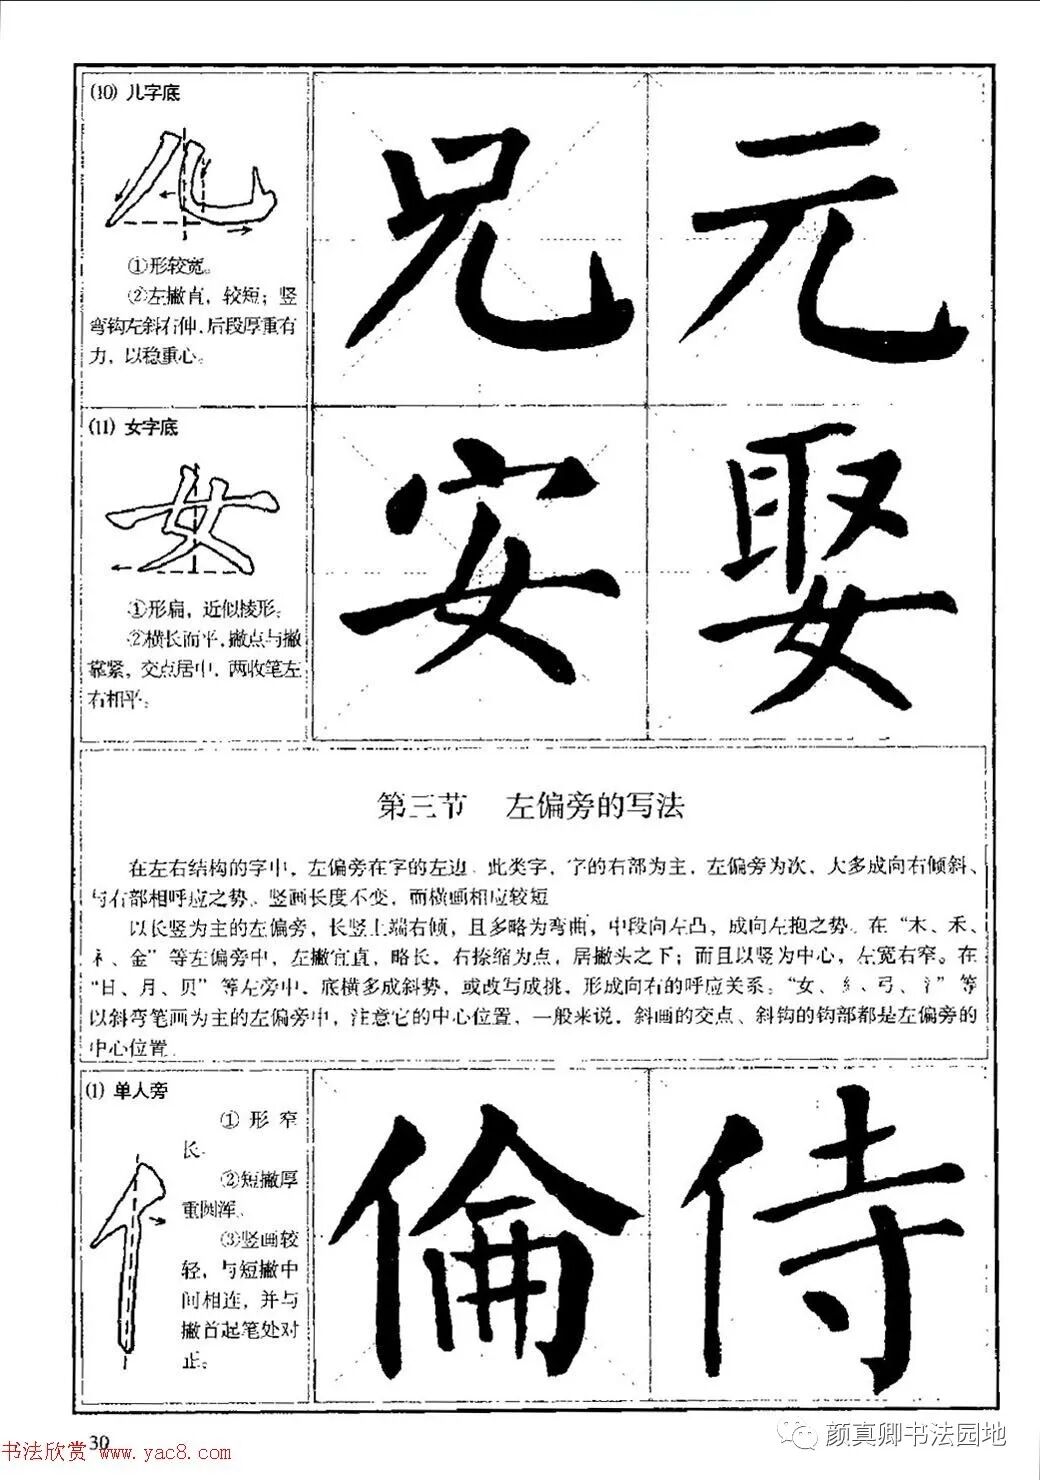 (10) 儿字底
①形较宽。
②左撇直，较短；竖
弯钩左斜右伸，后段厚重有
力，以稳重心。
兄 元
(11) 女字底
①形扁，近似棱形。
②横长而平，撇点与撇
靠紧，交点居中，两收笔左
右相平。
安 娶
第三节 左偏旁的写法
在左右结构的字中，左偏旁在字的左边。此类字，字的右部为主，左偏旁为次，大多成向右倾斜、
与右部相呼应之势。竖画长度不变，而横画相应较短
以长竖为主的左偏旁，长竖上端右倾，且多略为弯曲，中段向左凸，成向左抱之势。在“木、禾、
礻、金”等左偏旁中，左撇宜直，略长，右捺缩为点，居撇头之下；而且以竖为中心，左宽右窄。在
“日、月、贝”等左旁中，底横多成斜势，或改写成挑，形成向右的呼应关系。“女、纟、弓、犭”等
以斜弯笔画为主的左偏旁中，注意它的中心位置，一般来说，斜画的交点、斜钩的钩部都是左偏旁的
中心位置
(1) 单人旁
①形窄
长。
②短撇厚
重圆浑。
③竖画较
轻，与短撇中
间相连，并与
撇首起笔处对
正。
倫 侍
30
书法欣赏 www.yac8.com
颜真卿书法园地